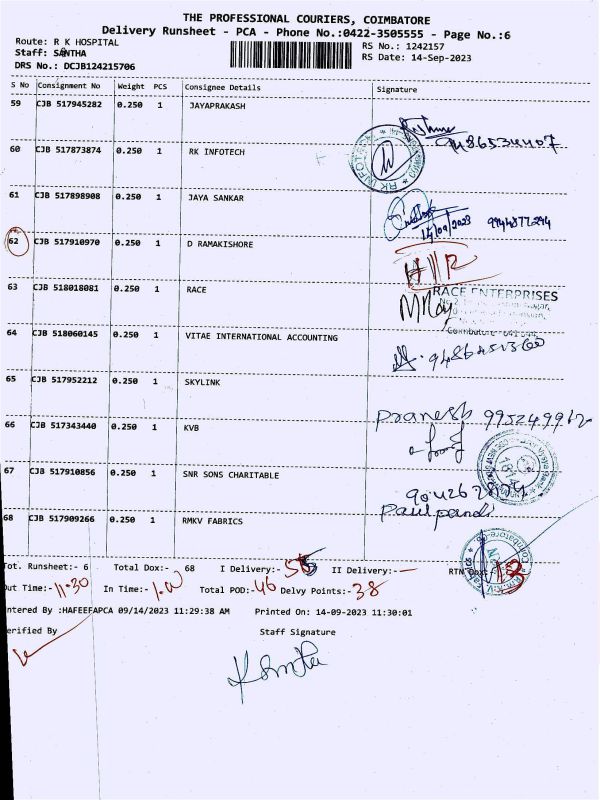 THE PROFESSIONAL COURIERS, COIMBATORE
Delivery Runsheet - PCA - Phone No.:0422-3505555 - Page No.:6
Route: R K HOSPITAL
RS No.: 1242157
Staff: SANTHA
RS Date: 14-Sep-2023
DRS No.: DCJB124215706
S No Consignment No Weight PCS Consignee Details Signature
59 CJB 517945282 0.250 1 JAYAPRAKASH
60 CJB 517873874 0.250 1 RK INFOTECH
RK INFOTECH
61 CJB 517898908 0.250 1 JAYA SANKAR
14/09/2023 9944877294
62 CJB 517910970 0.250 1 D RAMAKISHORE
63 CJB 518018081 0.250 1 RACE
RACE ENTERPRISES
64 CJB 518060145 0.250 1 VITAE INTERNATIONAL ACCOUNTING
9486451360
65 CJB 517952212 0.250 1 SKYLINK
66 CJB 517343440 0.250 1 KVB
Pranesh
67 CJB 517910856 0.250 1 SNR SONS CHARITABLE
68 CJB 517909266 0.250 1 RMKV FABRICS
Paulpandi
Tot. Runsheet:- 6 Total Dox:- 68 I Delivery:- II Delivery:- —
Out Time:- 11.30 In Time:- 1.00 Total POD:- 46 Delvy Points:- 38
Entered By :HAFEEFAPCA 09/14/2023 11:29:38 AM Printed On: 14-09-2023 11:30:01
Verified By Staff Signature